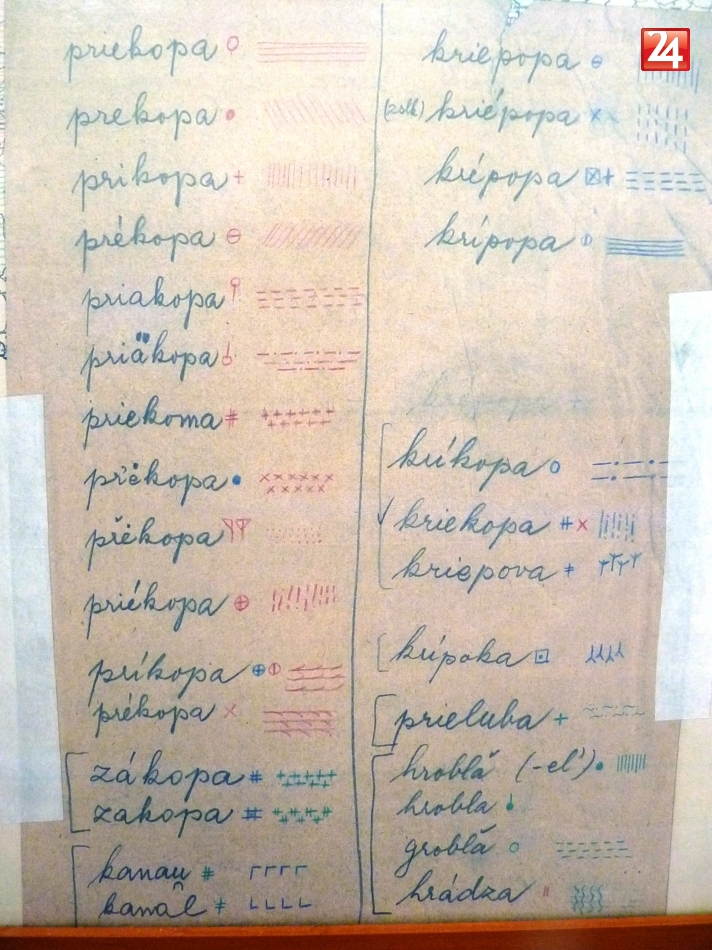 24
priekopa
prekopa
prikopa
prékopa
priakopa
priäkopa
priekoma
přėkopa
přėkopa
priékopa
príkopa
prékopa
zákopa
zakopa
kanau
kanal̑
kriepopa
(zolh) kriépopa
krépopa
krípopa
kríkopa
kriekopa
kriepova
krípoka
prieluba
hroblă (-el')
hrobla
groblă
hrádza